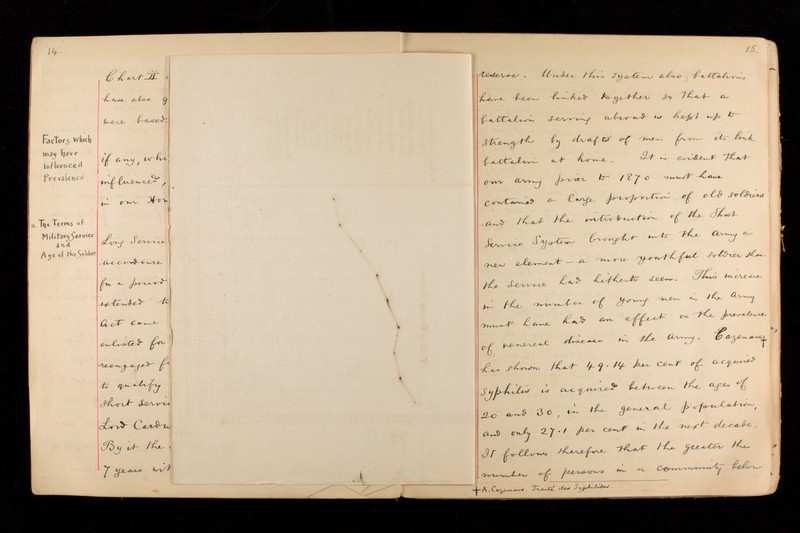 14
Chart II
have also g
were based
if any, whi
influenced,
in our Hom
Long Service
accordance
for a period
extended
Act came
enlisted for
reengaged f
to qualify
Short Servi
Lord Cardw
By it the
7 years wit
Factors which
may have
influenced
Prevalence
a. The Terms of
Military Service
and
Age of the Soldier
15.
reserve. Under this system also, battalions
have been linked together so that a
battalion serving abroad is kept up to
strength by drafts of men from its link
battalion at home. It is evident that
our army prior to 1870 must have
contained a large proportion of old soldiers
and that the introduction of the Short
Service System brought into the army a
new element — a more youthful soldier than
the Service had hitherto seen. This increase
in the number of young men in the Army
must have had an effect on the prevalence
of venereal disease in the Army. Cazenave†
has shown that 49.14 per cent of acquired
Syphilis is acquired between the ages of
20 and 30, in the general population,
and only 27.1 per cent in the next decade.
It follows therefore that the greater the
number of persons in a community below
† A. Cazenave. Traité des Syphilides.